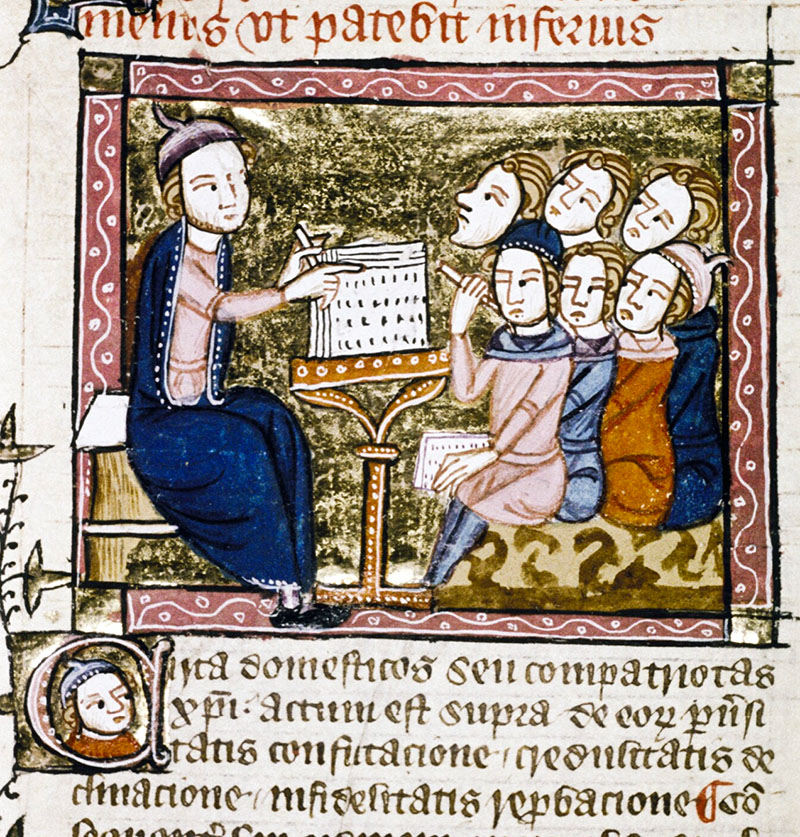 vt patebit inferius
Circa domesticos seu compatriotas
xp̃i. actum est supra de eoꝝ ꝑũsi
tatis confutacione, credulitatis de
clinacione, infidelitatis repꝛobacione ¶ Cõ